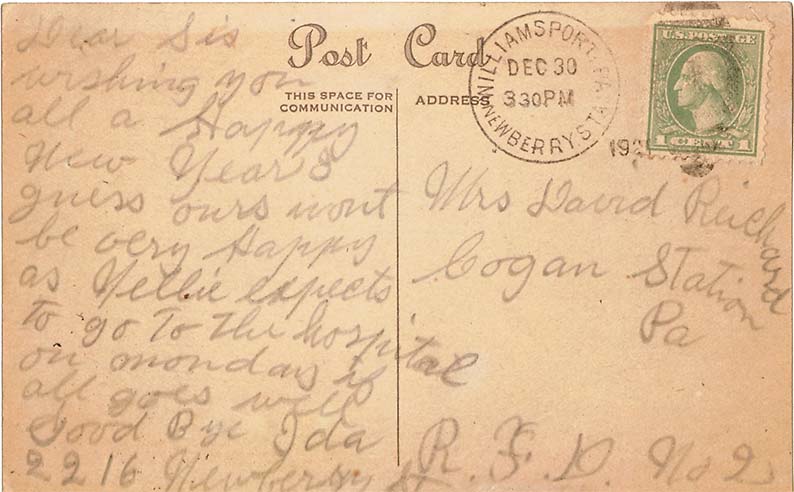 Post Card
THIS SPACE FOR
COMMUNICATION
ADDRESS
WILLIAMSPORT, PA.
DEC 30
330PM
NEWBERRY STA.
U.S. POSTAGE
1 CENT 1
Dear Sis
wishing you
all a Happy
New Years
guess ours wont
be very Happy
as Nellie expects
to go to the hospital
on monday if
all goes well
Good Bye Ida
2216 Newberry St
Mrs David Reichard
Cogan Station
Pa
R. F. D. No 2